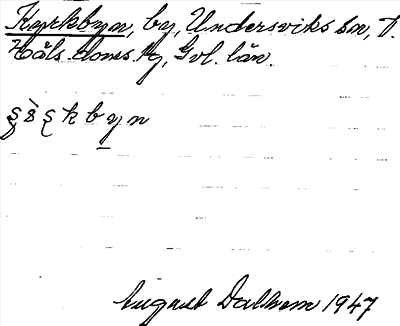 Kyrkbyn, by, Undersviks sn, t.
Häls. doms. tg, Gvl. län.
kbyn
August Dalbom 1947